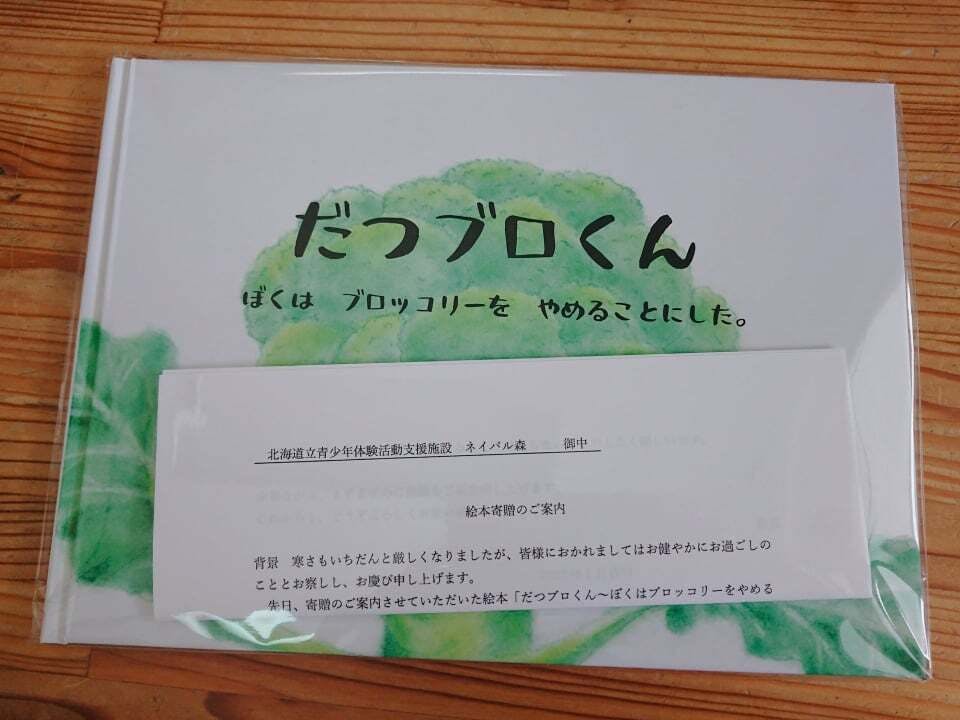 だつブロくん
ぼくは ブロッコリーを やめることにした。
北海道立青少年体験活動支援施設 ネイパル森 御中
絵本寄贈のご案内
背景 寒さもいちだんと厳しくなりましたが、皆様におかれましてはお健やかにお過ごしの
こととお察しし、お慶び申し上げます。
先日、寄贈のご案内させていただいた絵本「だつブロくん～ぼくはブロッコリーをやめる